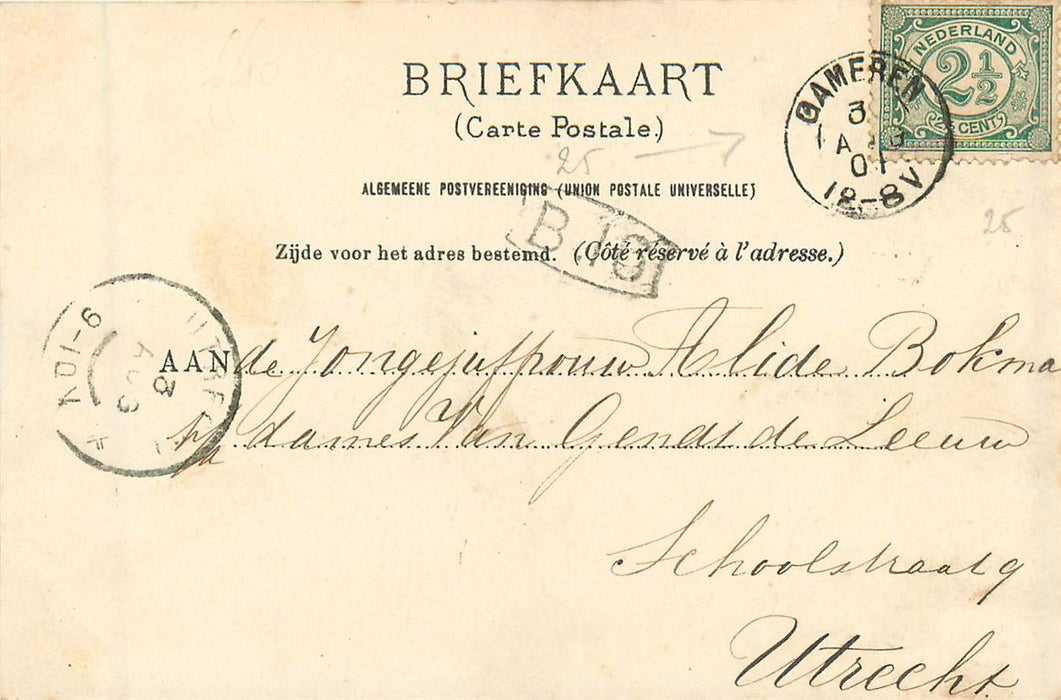 BRIEFKAART
(Carte Postale.)
25
ALGEMEENE POSTVEREENIGING (UNION POSTALE UNIVERSELLE)
Zijde voor het adres bestemd. (Côté réservé à l'adresse.)
NEDERLAND
2 1/2
CENT
3
AUG
01
12-8V
25
B 10
UTRECHT
3
AUG
9-10V
AAN de Jongejuffrouw Alide Bokma
dames Van Gendt de Leeuw
Schoolstraat 9
Utrecht